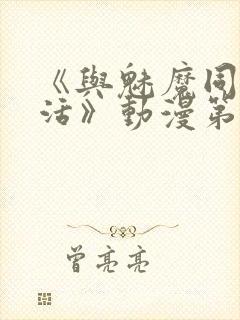 《與魅魔同
活》動漫第
曾亮亮